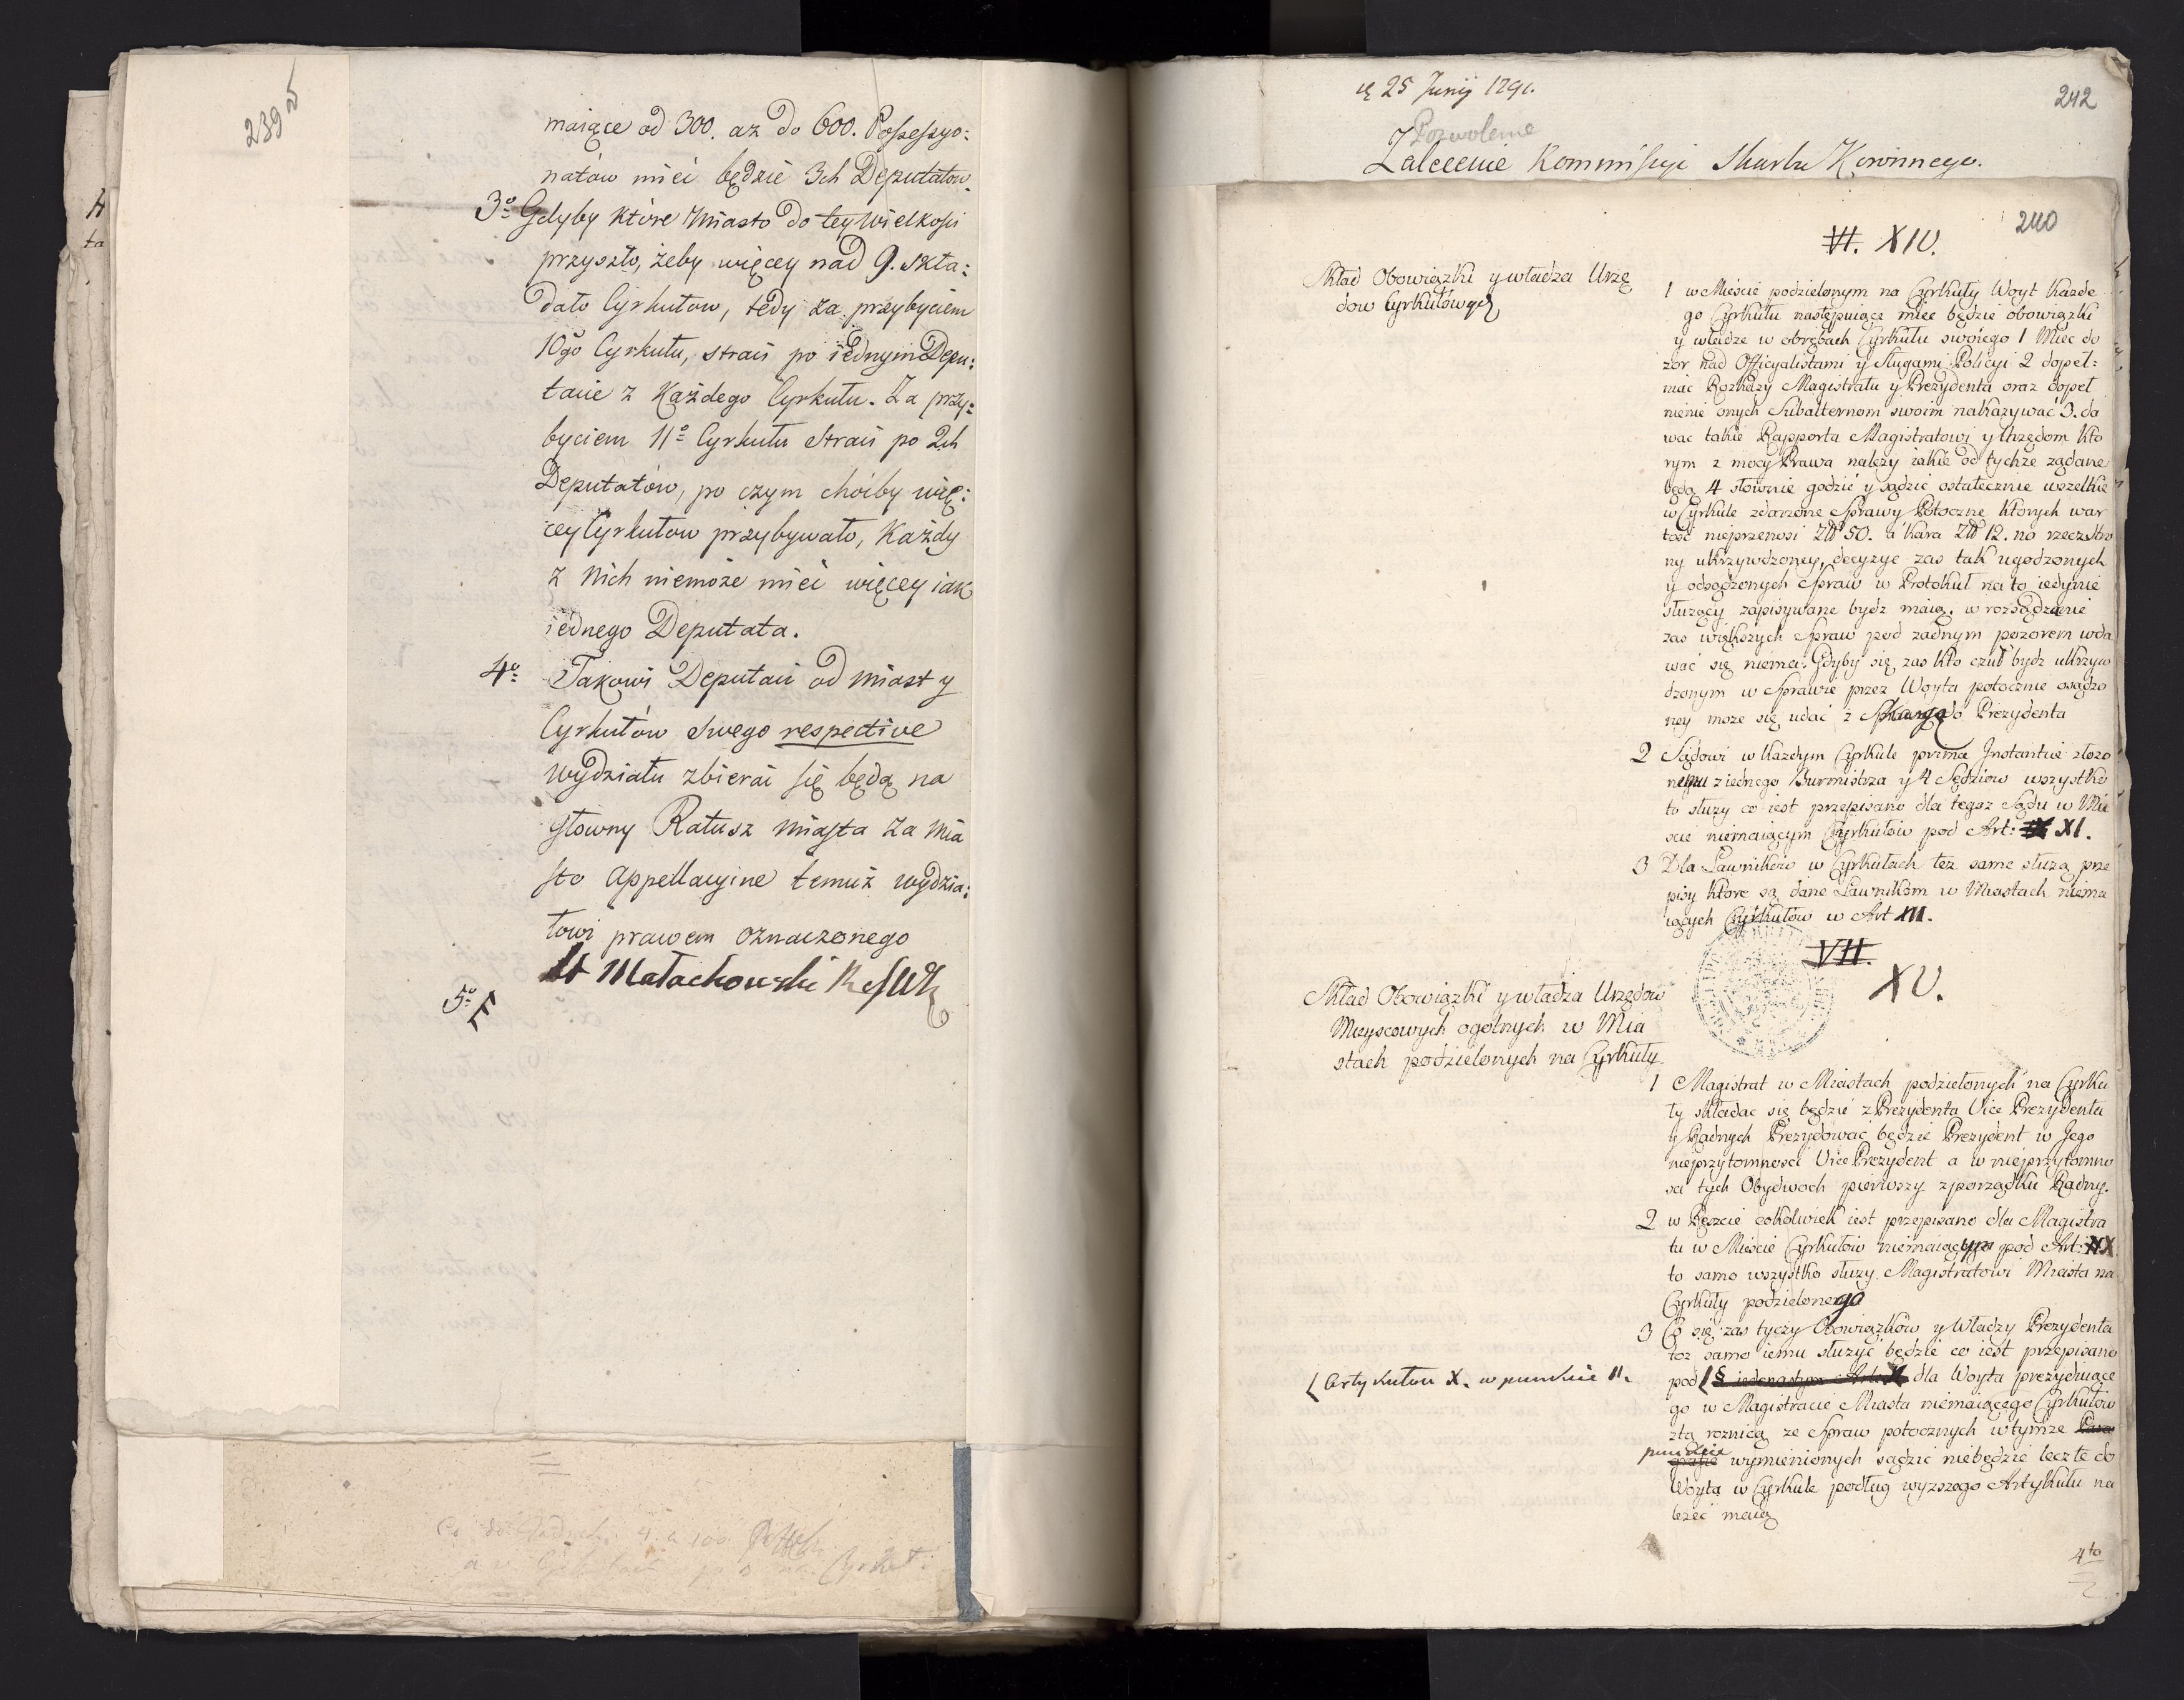 239v
maiące od 300. aż do 600. Possessyo:
natów mieć będzie 3ch Deputatow.
3o Gdyby które Miasto do tey wielkości
przyszło, żeby więcey nad 9. skła:
dało Cyrkułow, tedy za przybyciem
10go Cyrkułu, straci po iednym Depu:
tacie z Każdego Cyrkułu. Za przy:
byciem 11o Cyrkułu straci po 2ch
Deputatów, po czym choćby wię:
cey Cyrkułow przybywało, Każdy
z Nich niemoże mieć więcey iak
iednego Deputata.
4o Takowi Deputaci od Miast y
Cyrkułów swego respective
wydziału zbierać się będą na
głowny Ratusz Miasta za Mia
sto Appellacyine temuż wydzia:
łowi prawem oznaczonego
St Małachowski
5o
25 Junij 1791.
242
Pozwolenie
Zalecenie Kommissyi Skarbu Koronnego.
240
VI. XIV.
Skład Obowiązki y władza Urzę
dow Cyrkułowych
1 w Mieście podzielonym na Cyrkuły Woyt Każde
go Cyrkułu następuiące miec będzie obowiązki
y władze w obrębach Cyrkułu swoiego 1 Miec do
zor nad Officyalistami y Sługami Policyi 2 dopeł:
niac Rozkazy Magistratu y Prezydenta oraz dopeł
nienie onych Subalternom swoim nakazywać 3. da
wac takie Rapporta Magistratowi y Urzędom Kto
rym z mocy Prawa nalezy iakie od tychże zgdane
będą 4 słownie godzić y sądzić ostatecznie wszelkie
w Cyrkule zdarzone Sprawy Potoczne których war
tość nieprzenosi Złł 50. a kara Złł 12. na rzecz stro
ny ukrzywdzoney, decyzye zas tak ugodzonych
y odsądzonych Spraw w Protokuł na to iedynie
służący zapisywane bydz maią. w rozsądzanie
zas większych Spraw pod zadnym pozorem wda
wać się niema. Gdyby się zas kto czuł bydz ukrzyw
dzonym w Sprawie przez Woyta potocznie osądzo
ney moze się udać z Skargą do Prezydenta
2 Sądowi w każdym Cyrkule prima Instantiæ złożo
nemu z iednego Burmistrza y 4 Sędziow wszystko
to służy co iest przepisano dla tegoz Sądu w Mie
scie niemaiącym Cyrkułów pod Art: XI.
3 Dla Ławników w Cyrkułach też same służą prze
pisy które są dane Ławnikom w Miastach niema
iących Cyrkułów w Art XII.
VII.
XV.
Skład Obowiązki y władza Urzędow
Mieyscowych ogólnych w Mia
stach podzielonych na Cyrkuły
1 Magistrat w Miastach podzielonych na Cyrku
ły składac się będzie z Prezydenta Vice Prezydenta
y Radnych Prezydować będzie Prezydent w Jego
nieprzytomności Vice Prezydent a w nieprzytomno
sci tych Obydwoch pierwszy z porządku Radny.
2 w Reszcie cokolwiek iest przepisano dla Magistra
tu w Mieście Cyrkułów niemaiącym pod Art: X
to samo wszystko służy Magistratowi Miasta na
Cyrkuły podzielonego
3 Co się zas tyczy Obowiązków y Władzy Prezydenta
toz samo iemu służyć będzie co iest przepisano
Artykułem X. w punkcie 11.
pod § iedenastym Art: X dla Woyta prezyduiące
go w Magistracie Miasta niemaiącego Cyrkułow
z tą roznicą ze Spraw potocznych w tymze Para
punkcie
grafie wymienionych sądzic niebędzie lecz te do
Woyta w Cyrkule podług wyzszego Artykułu na
lezec maią
4to